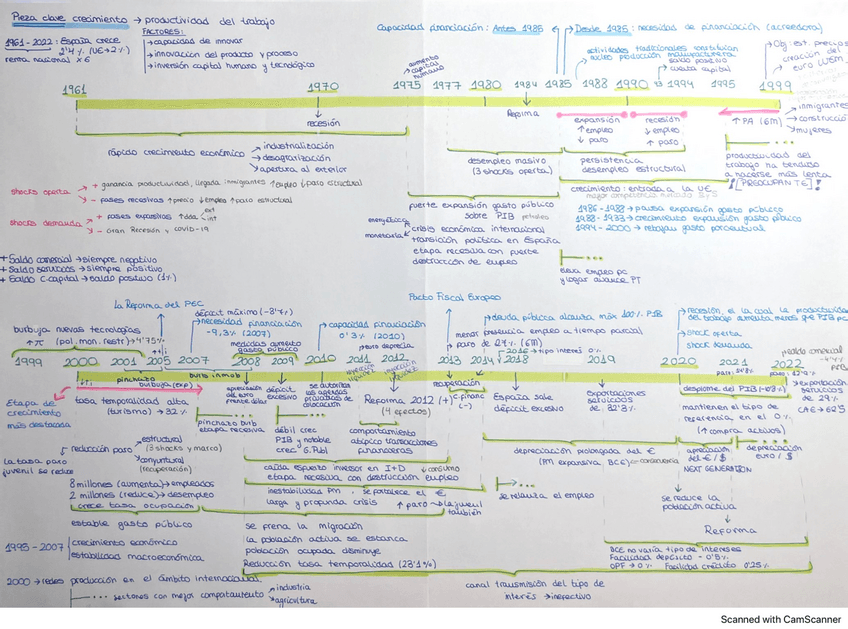 Pieza clave crecimiento → productividad del trabajo
1961-2022: España crece
2'4% (UE→2%)
renta nacional x6
FACTORES:
→capacidad de innovar
→innovación del producto y proceso
→inversión capital humano y tecnológico
Capacidad financiación: Antes 1985
→Desde 1985: necesidad de financiación (acreedora)
actividades tradicionales constituían
núcleo producción manufacturera
saldo positivo
→cuenta capital
→Obj. est. precios
creación del
euro
aumento
capital
humano
1961
1970
1975 1977 1980 1984 1985 1988 1990 93 1994 1999
recesión
Reforma
expansión
↑empleo
↓paro
recesión
↓empleo
↑paro
↑PA (6M)
→inmigrantes
→construcción
→mujeres
rápido crecimiento económico
→industrialización
→desagrarización
→apertura al exterior
desempleo masivo
(3 shocks oferta)
persistencia
desempleo estructural
productividad del
trabajo ha tendido
a hacerse más lenta
¡[PREOCUPANTE]!
shocks oferta
+ ganancia productividad, llegada inmigrantes ↑empleo ↓paro estructural
- fases recesivas ↑precio ↓empleo ↑paro estructural
shocks demanda
+ fases expansivas ↑dda ext int
- Gran Recesión y COVID-19
fuerte expansión gasto público
sobre PIB
energética
monetaria
crisis económica internacional
transición política en España
etapa recesiva con fuerte
destrucción de empleo
crecimiento: entrada a la UE
1986-1988→pausa expansión gasto público
1988-1993→crecimiento expansión gasto público
1994-2000→rebajan gasto porcentual
eleva empleo pc
y lograr avance PT
+ Saldo comercial →siempre negativo
+ Saldo servicios →siempre positivo
+ Saldo C. capital →saldo positivo (1%)
La Reforma del PEC
Pacto Fiscal Europeo
burbuja nuevas tecnologías
↑π (pol. mon. restr)→4'75%
→necesidad financiación
-9,3% (2007)
medidas aumento
gasto público
→capacidad financiación
0'3% (2010)
→euro deprecia
→deuda pública alcanza máx 100% PIB
menor presencia empleo a tiempo parcial
paro de 27% (6M)
2016→tipo interés 0%
→recesión, en la cual la productividad
del trabajo aumenta menos que PIB pc
→shock oferta
→shock demanda
1999 2000 2001 2005 2007 2008 2009 2010 2011 2012 2013 2014 2018 2019 2020 2021 2022
pinchazo
burbuja (exp)
burb inmob
recuperación
desplome del PIB
Etapa de
crecimiento
más destacada
tasa temporalidad alta
(turismo) →32%
pinchazo burb
etapa recesiva
apreciación
del euro
frente dólar
déficit
excesivo
débil crec
PIB y notable
crec G. Públ
Reforma 2012 (+)
(4 efectos)
comportamiento
atípico transacciones
financieras
España sale
déficit excesivo
exportaciones
servicios
de 32'3%
mantienen el tipo de
referencia en el 0%
(↑compra activos)
→exportación
servicios
de 29%
CAE→62%
reducción paro
estructural
(3 shocks y marco)
coyuntural
(recuperación)
la tasa paro
juvenil se reduce
8 millones (aumenta)→empleados
2 millones (reduce)→desempleo
crece tasa ocupación
caída esfuerzo inversor en I+D
↓consumo
etapa recesiva con destrucción empleo
inestabilidad PM, se fortalece el €
larga y profunda crisis
↑paro →la juvenil
también
depreciación prolongada del €
(PM expansiva BCE)
apreciación
del €/$
NEXT GENERATION
depreciación
euro/$
se relanza el empleo
se reduce la
población activa
Reforma
estable gasto público
1995-2007
crecimiento económico
estabilidad macroeconómica
se frena la migración
la población activa se estanca
población ocupada disminuye
Reducción tasa temporalidad (23'1%)
BCE no varía tipo de intereses
Facilidad depósito -0'5%
OPF→0% Facilidad crédito 0'25%
2000→redes producción en el ámbito internacional
sectores con mejor comportamiento
→industria
→agricultura
canal transmisión del tipo de
interés →inefectivo
Scanned with CamScanner